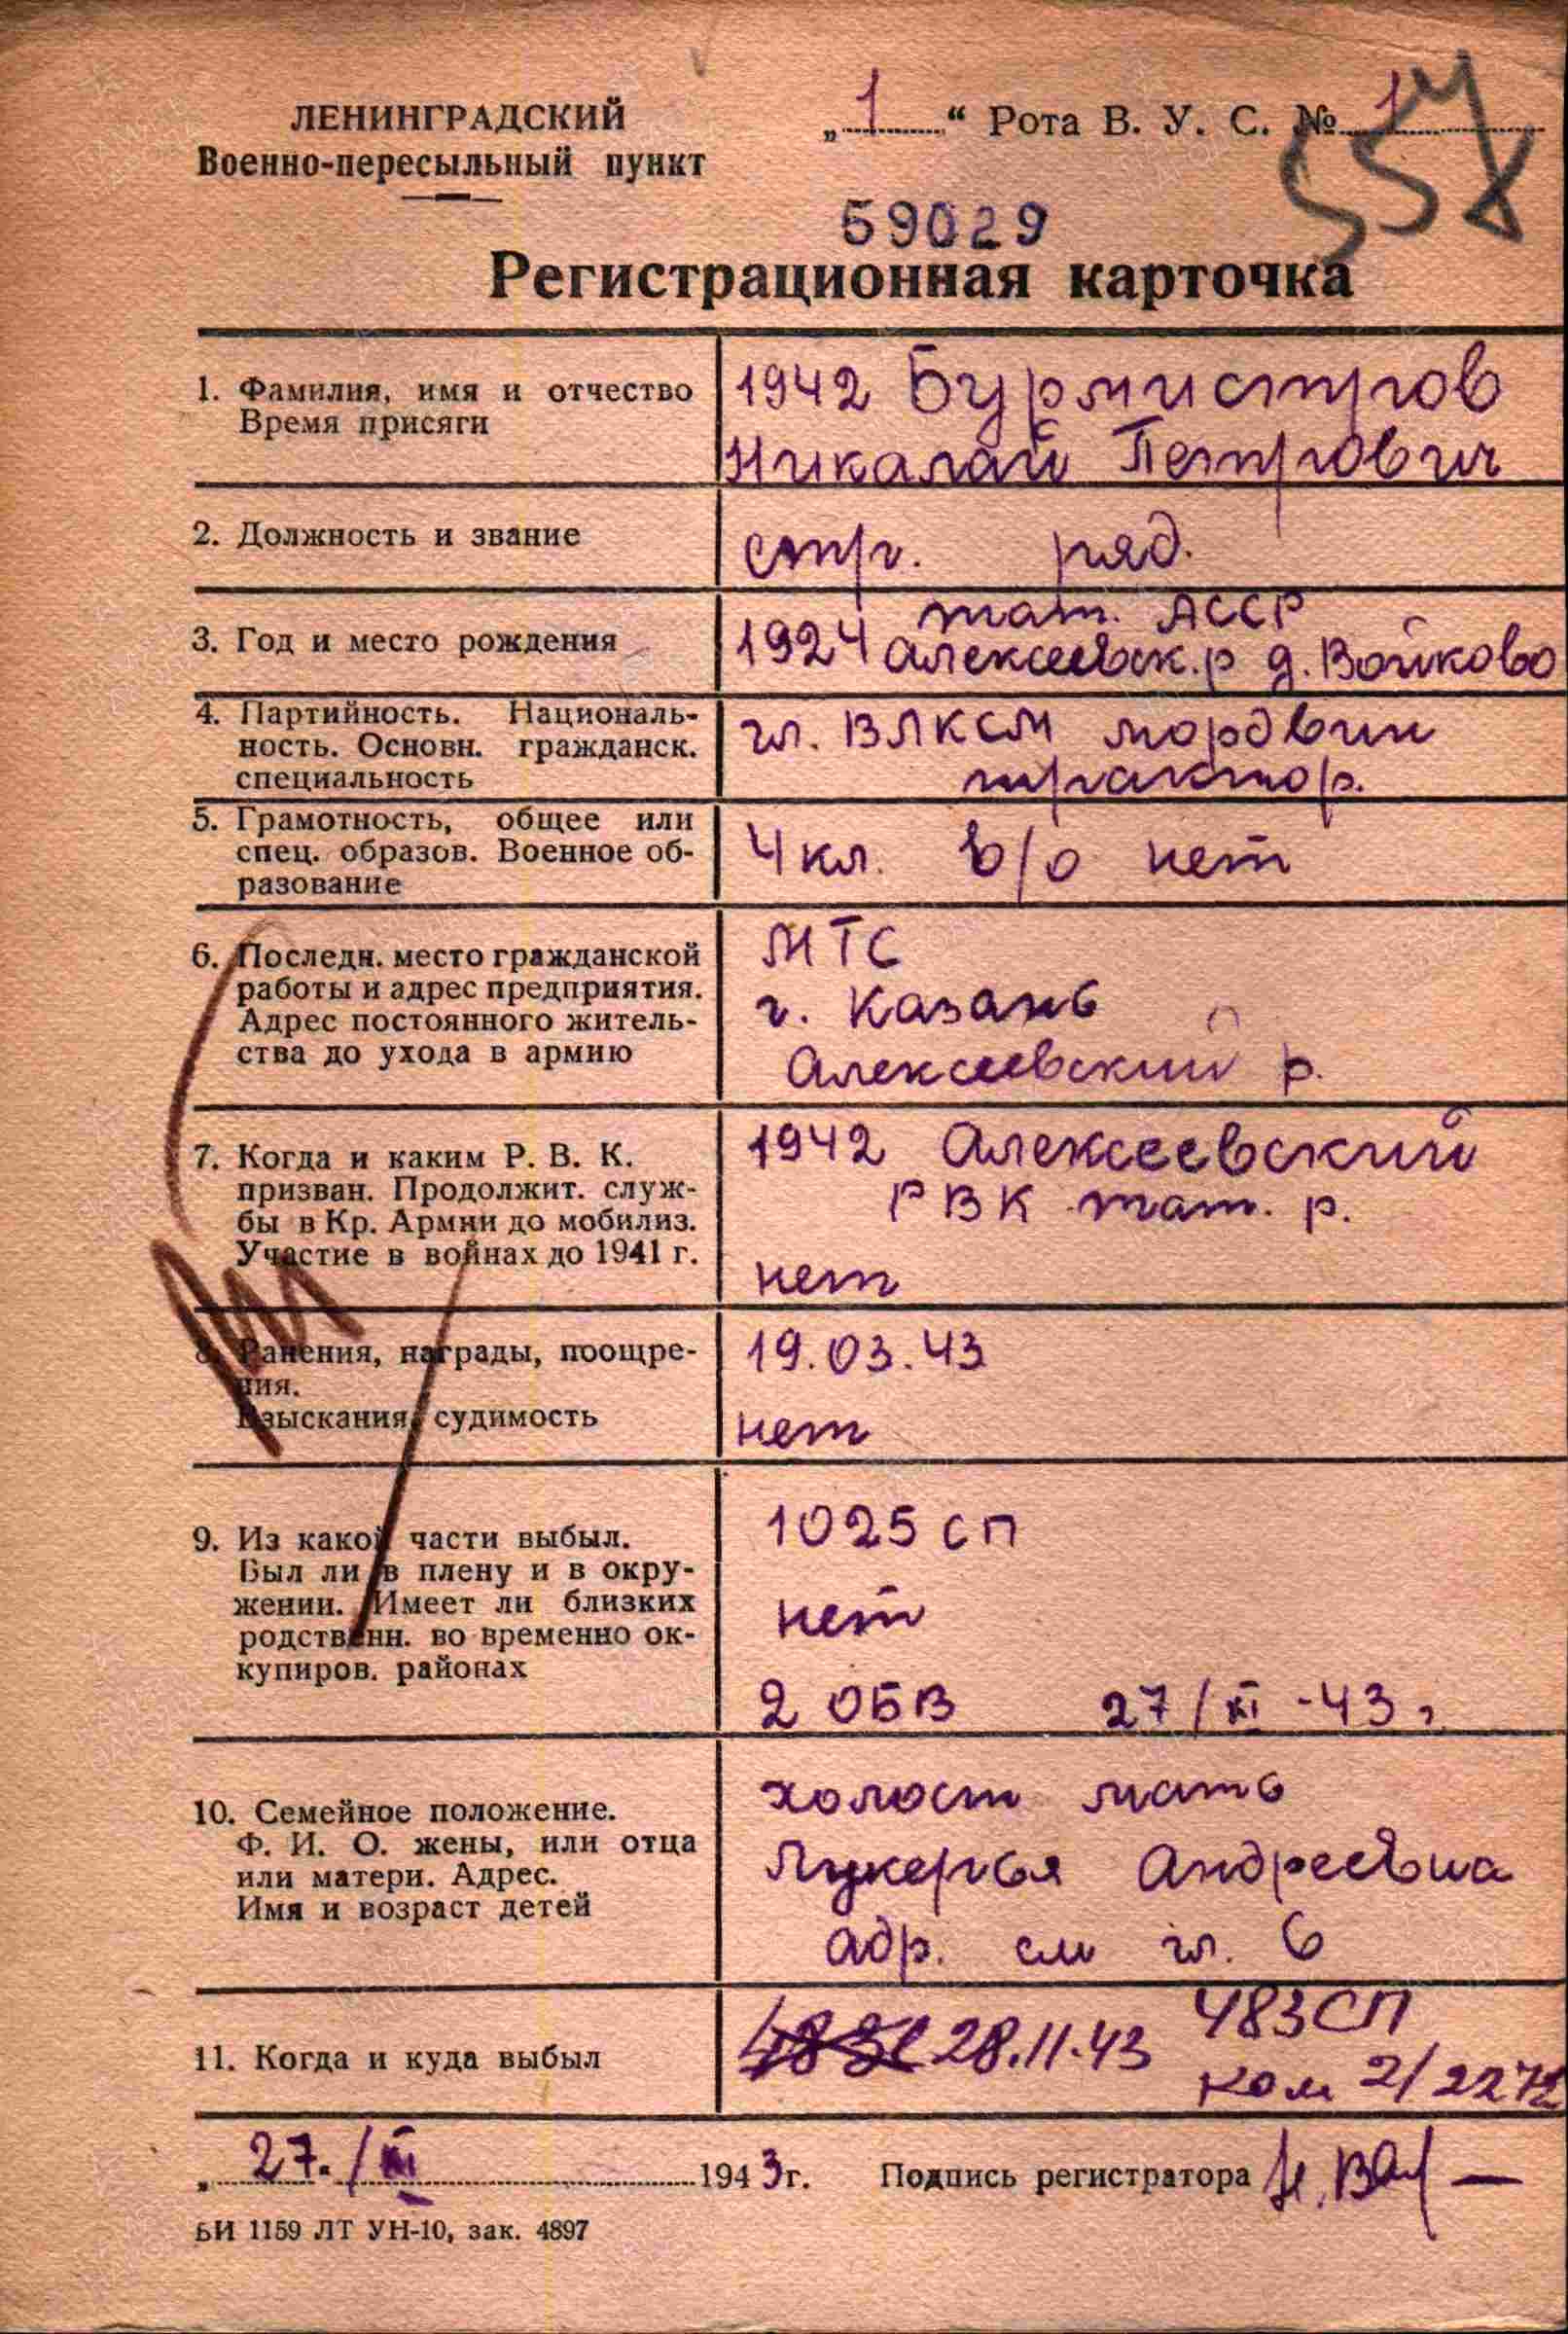 ЛЕНИНГРАДСКИЙ
Военно-пересыльный пункт
„ 1 “ Рота В. У. С. № 1
59029
Регистрационная карточка
1. Фамилия, имя и отчество
Время присяги
1942 Бурмистров
Никалай Петрович
2. Должность и звание
стр. ряд.
3. Год и место рождения
тат. АССР
1924 Алексеевск. р д. Войково
4. Партийность. Националь-
ность. Основн. гражданск.
специальность
чл. ВЛКСМ мордвин
трактор.
5. Грамотность, общее или
спец. образов. Военное об-
разование
4 кл. в/о нет
6. Последн. место гражданской
работы и адрес предприятия.
Адрес постоянного житель-
ства до ухода в армию
МТС
г. Казань
Алексеевский р.
7. Когда и каким Р. В. К.
призван. Продолжит. служ-
бы в Кр. Армии до мобилиз.
Участие в войнах до 1941 г.
1942 Алексеевский
РВК тат. р.
нет
8. Ранения, награды, поощре-
ния.
Взыскания, судимость
19.03.43
нет
9. Из какой части выбыл.
Был ли в плену и в окру-
жении. Имеет ли близких
родственн. во временно ок-
купиров. районах
1025 сп
нет
2 ОБВ 27/XI -43 г
10. Семейное положение.
Ф. И. О. жены, или отца
или матери. Адрес.
Имя и возраст детей
холост мать
Лукерья Андреевна
адр. см чл. 6
11. Когда и куда выбыл
28.11.43 483 СП
ком 2/2272
„ 27. / XI 1943 г. Подпись регистратора
ЬИ 1159 ЛТ УН-10, зак. 4897